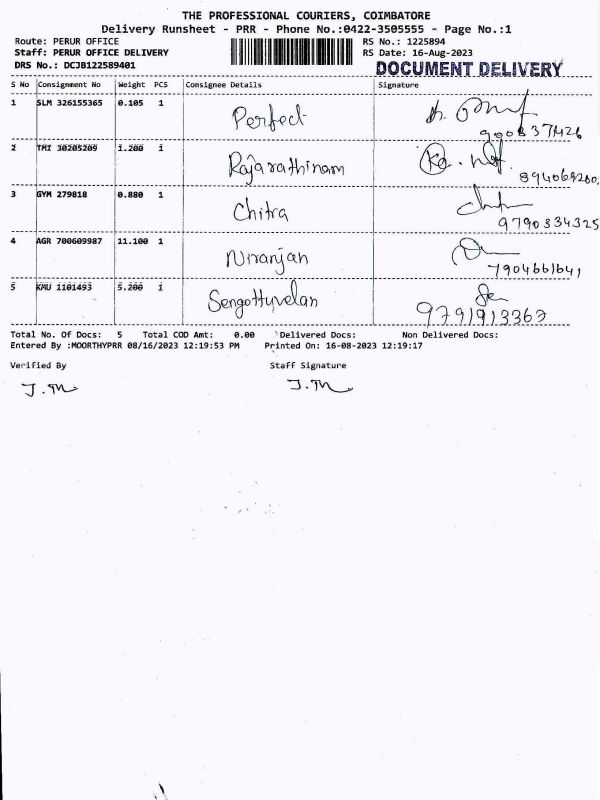 THE PROFESSIONAL COURIERS, COIMBATORE
Delivery Runsheet - PRR - Phone No.:0422-3505555 - Page No.:1
Route: PERUR OFFICE RS No.: 1225894
Staff: PERUR OFFICE DELIVERY RS Date: 16-Aug-2023
DRS No.: DCJB122589401 DOCUMENT DELIVERY
S No Consignment No Weight PCS Consignee Details Signature
1 SLM 326155365 0.105 1 Perfect
2 TMI 30205209 1.200 1 Rajarathinam
3 GYM 279818 0.880 1 Chitra
9790334325
4 AGR 700609987 11.100 1 Niranjan
7904661641
5 KMU 1101493 5.200 1 Sengottuvelan
9791913363
Total No. Of Docs: 5 Total COD Amt: 0.00 Delivered Docs: Non Delivered Docs:
Entered By :MOORTHYPRR 08/16/2023 12:19:53 PM Printed On: 16-08-2023 12:19:17
Verified By Staff Signature
J.M J.M